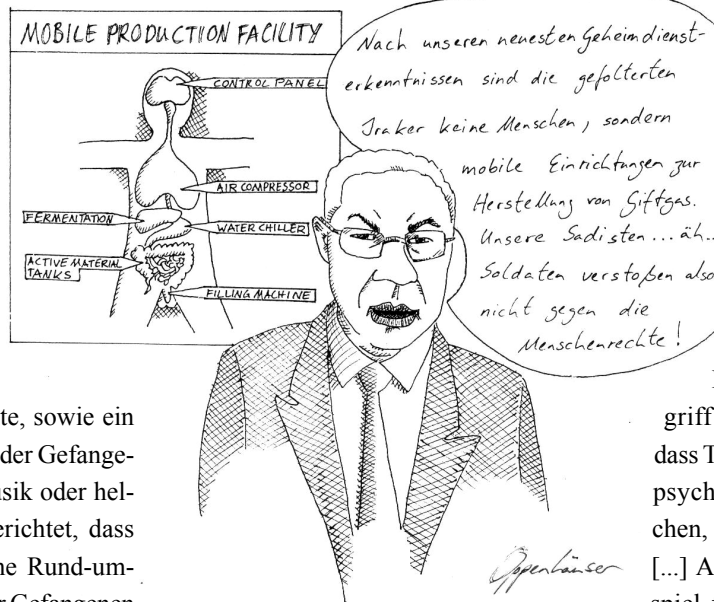 MOBILE PRODUCTION FACILITY
CONTROL PANEL
AIR COMPRESSOR
FERMENTATION
WATER CHILLER
ACTIVE MATERIAL
TANKS
FILLING MACHINE
Nach unseren neuesten Geheimdienst-
erkenntnissen sind die gefolterten
Iraker keine Menschen, sondern
mobile Einrichtungen zur
Herstellung von Giftgas.
Unsere Sadisten... äh...
Soldaten verstoßen also
nicht gegen die
Menschenrechte!
Oppenhäuser
te, sowie ein
der Gefange-
usik oder hel-
erichtet, dass
ne Rund-um-
r Gefangenen
griff
dass T
psych
chen,
[...] A
spiel